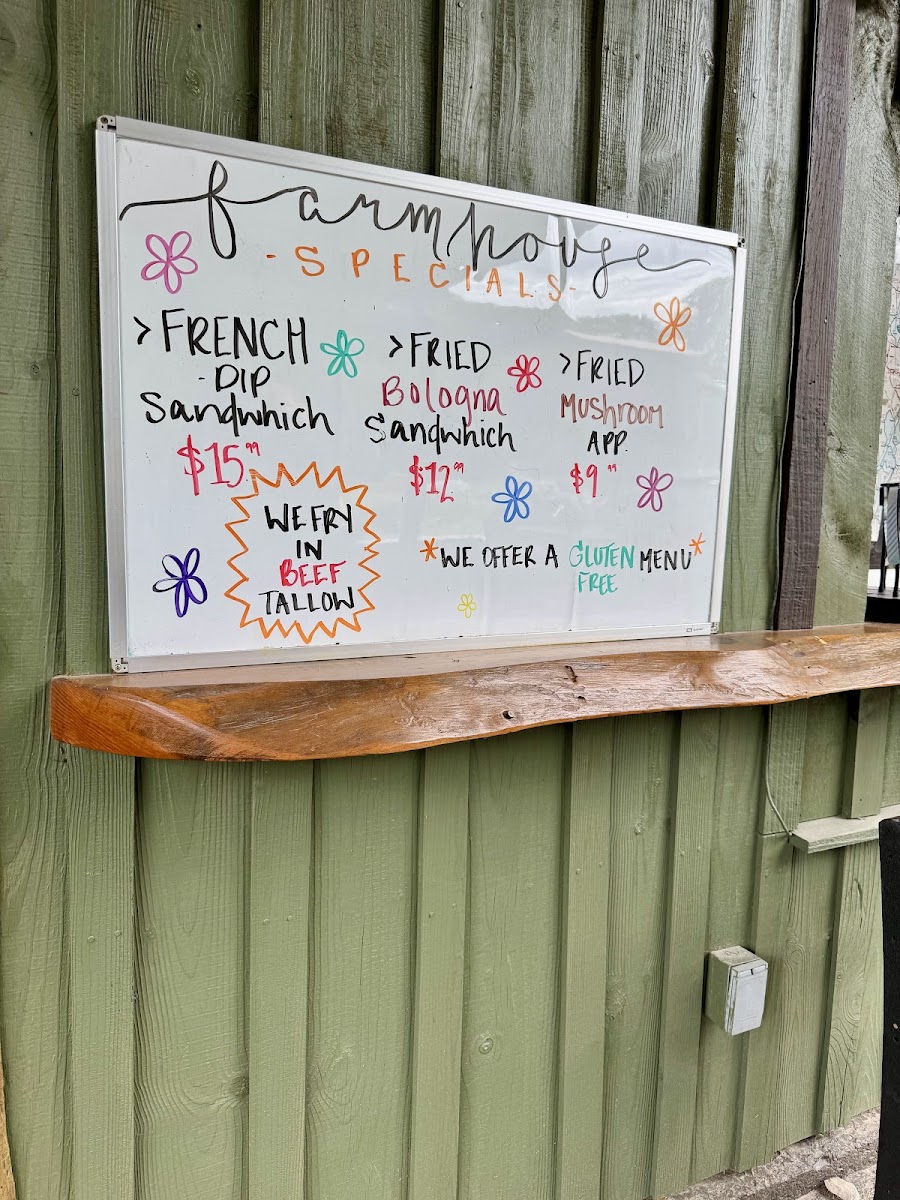 farmhouse
-SPECIALS-
> FRENCH
-DIP
Sandwhich
$15.99
> FRIED
Bologna
Sandwhich
$12.99
> FRIED
MUSHROOM
APP.
$9.99
WE FRY
IN
BEEF
TALLOW
*WE OFFER A GLUTEN MENU*
FREE